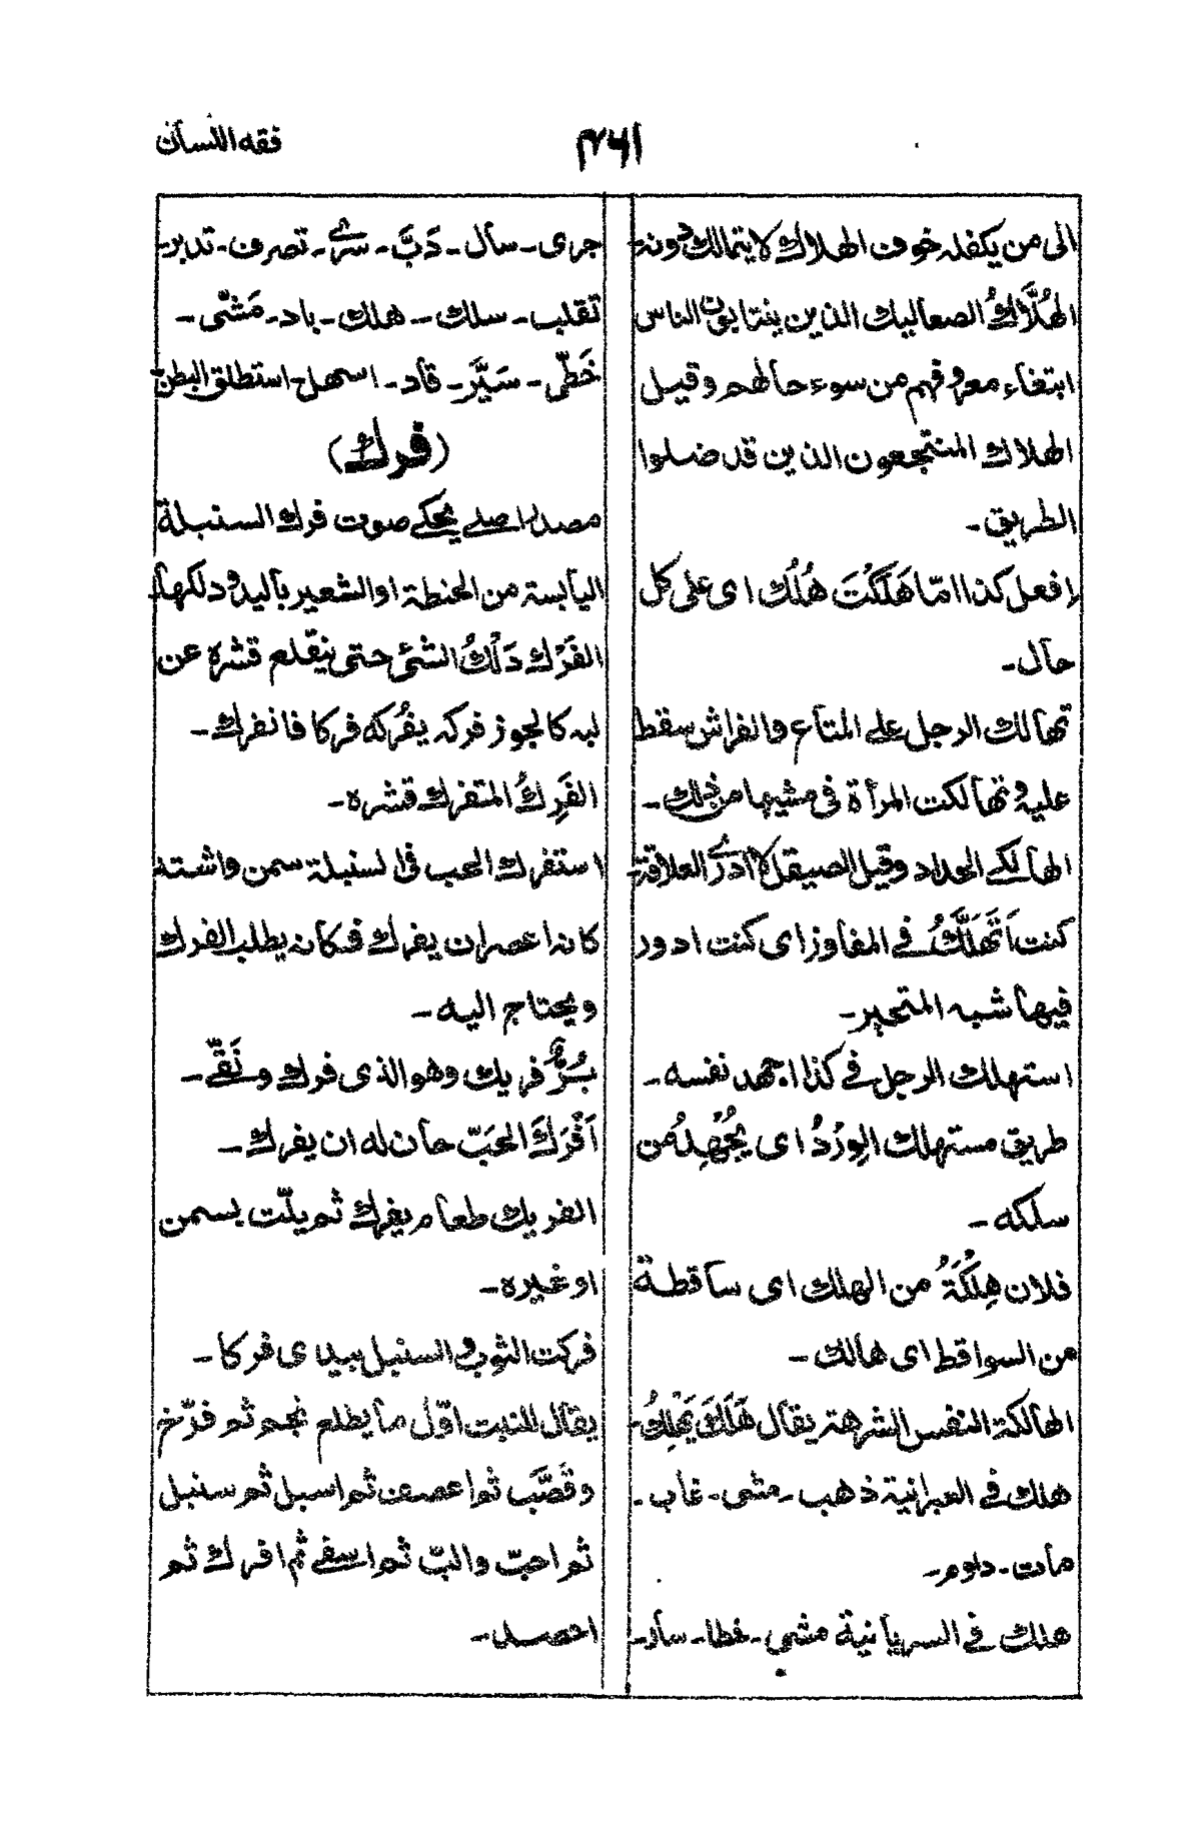 فقه اللسان
الى من يكفله خوف الهلاك لا يتمالك دونه
الهُلَّاكُ الصعاليك الذين ينتابون الناس
ابتغاء معروفهم من سوء حالهم وقيل
الهلاك المنتجعون الذين قد ضلوا
الطريق۔
افعل كذا امّا هَلَكَتْ هُلُكُ اى على كل
حال۔
تهالك الرجل على المتاع والفراش سقط
عليه وتهالكت المرأة فى مشيها من ذلك۔
الهالكى الحداد وقيل الصيقل لا ادرى العلاقة
كنت اَتَهَلَّكُ فى المفاوز اى كنت ادور
فيها شبه المتحير۔
استهلك الرجل فى كذا اجهد نفسه۔
طريق مستهلك الوِرْدُ اى يُجْهِدُ من
سلكه۔
فلان هِلَكَةٌ من الهلك اى ساقطة
من السواقط اى هالك۔
الهالكة النفس الشرهة يقال هَلَكَ يَهْلِكُ
هلك فى العبرانية ذهب۔ مشى۔ غاب۔
مات۔ داوم۔
هلك فى السريانية مشى۔ خطا۔ سار۔
جرى۔ سال۔ دَبَّ۔ سرى۔ تصرف۔ تدبر۔
تقلب۔ سلك۔ هلك۔ باد۔ مَشّى۔
خَطّى۔ سَيَّرَ۔ قاد۔ اسهل۔ استطلق البطن
(فرك)
مصدر اصلى يحكى صوت فرك السنبلة
اليابسة من الحنطة او الشعير باليد ودلكها۔
الفَرْك دَلْكُ الشئ حتى ينقلع قشره عن
لبه كالجوز فركه يفْرُكه فركا فانفرك۔
الفَرِكُ المتفرك قشره۔
استفرك الحب فى السنبلة سمن واشتد
كانه اعصران يفرك فكانه يطلب الفرك
ويحتاج اليه۔
بُرٌّ فريك وهو الذى فرك ونَقّى۔
اَفْرَكَ الحَبّ حان له ان يفرك۔
الفريك طعام يفرك ثم يلّت بسمن
او غيره۔
فركت الثوب والسنبل بيدى فركا۔
يقال للنبت اوّل ما يطلع نجم ثم فرّخ
وقَصَّبَ ثم اعصف ثم اسبل ثم سنبل
ثم احبّ والبّ ثم اسفى ثم افرك ثم
احصد۔